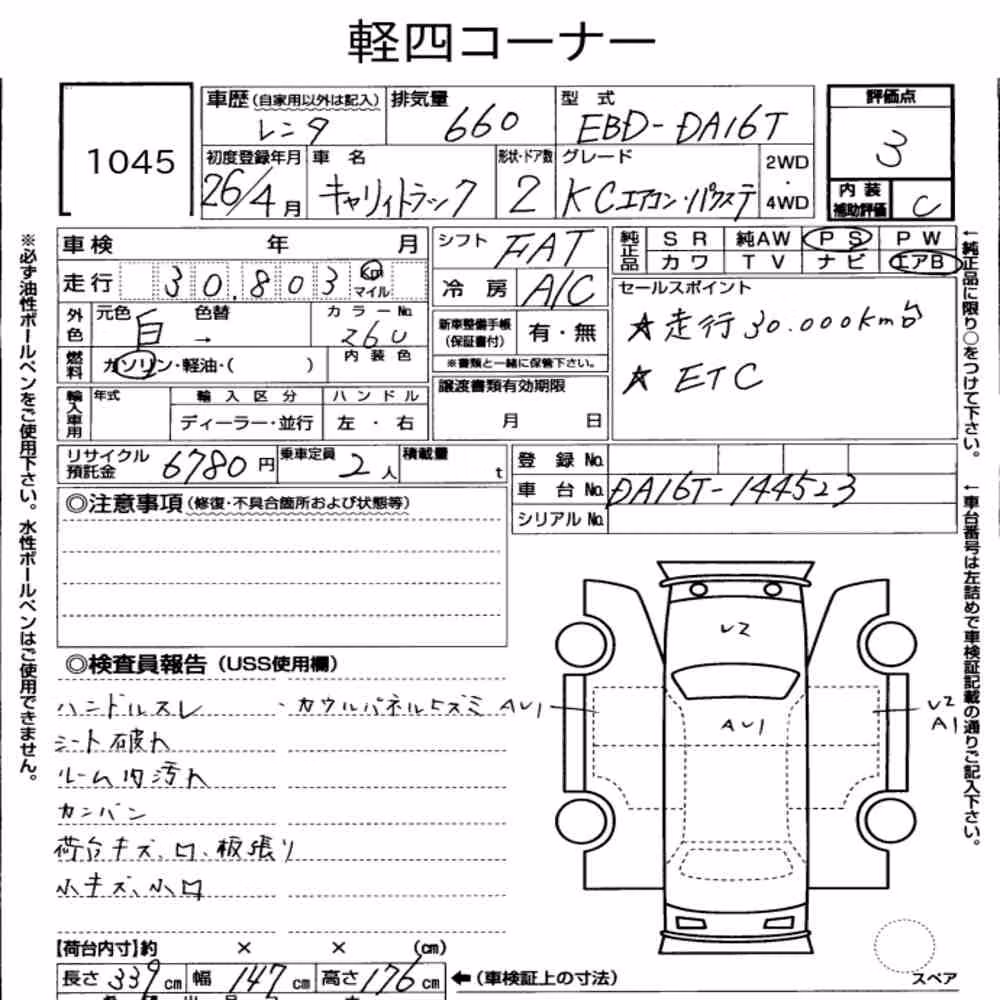 軽四コーナー
1045
車歴(自家用以外は記入) 排気量 型式
レンタ 660 EBD-DA16T
初度登録年月 車名 形状・ドア数 グレード 2WD・4WD
26/4月 キャリィトラック 2 KCエアコン・パワステ
評価点
3
内装補助評価 C
車検 年 月
走行 30.803 Km マイル
外色 元色 白 色替 → カラーNo. 26U
燃料 ガソリン・軽油・( ) 内装色
輸入車用 年式 輸入区分 ハンドル
ディーラー・並行 左・右
シフト FAT
冷房 A/C
新車整備手帳(保証書付) 有・無
※書類と一緒に保管下さい。
譲渡書類有効期限
月 日
純正品 SR 純AW PS PW
カワ TV ナビ エアB
セールスポイント
☆走行30.000Km台
☆ETC
リサイクル預託金 6780円 乗車定員 2人 積載量 t
登録No.
車台No. DA16T-144523
シリアルNo.
◎注意事項(修復・不具合箇所および状態等)
◎検査員報告(USS使用欄)
ハンドルスレ ・カウルパネルヒズミ
シート破れ
ルーム内汚れ
カンバン
荷台キズ、凹、板張り
小キズ、小凹
AU1
U2
AU1
U2
A1
スペア
【荷台内寸】約 × × (cm)
長さ 339cm 幅 147cm 高さ 176cm ←(車検証上の寸法)
※必ず油性ボールペンをご使用下さい。水性ボールペンはご使用できません。
←純正品に限り○をつけて下さい。
←車台番号は左詰めで車検証記載の通りご記入下さい。